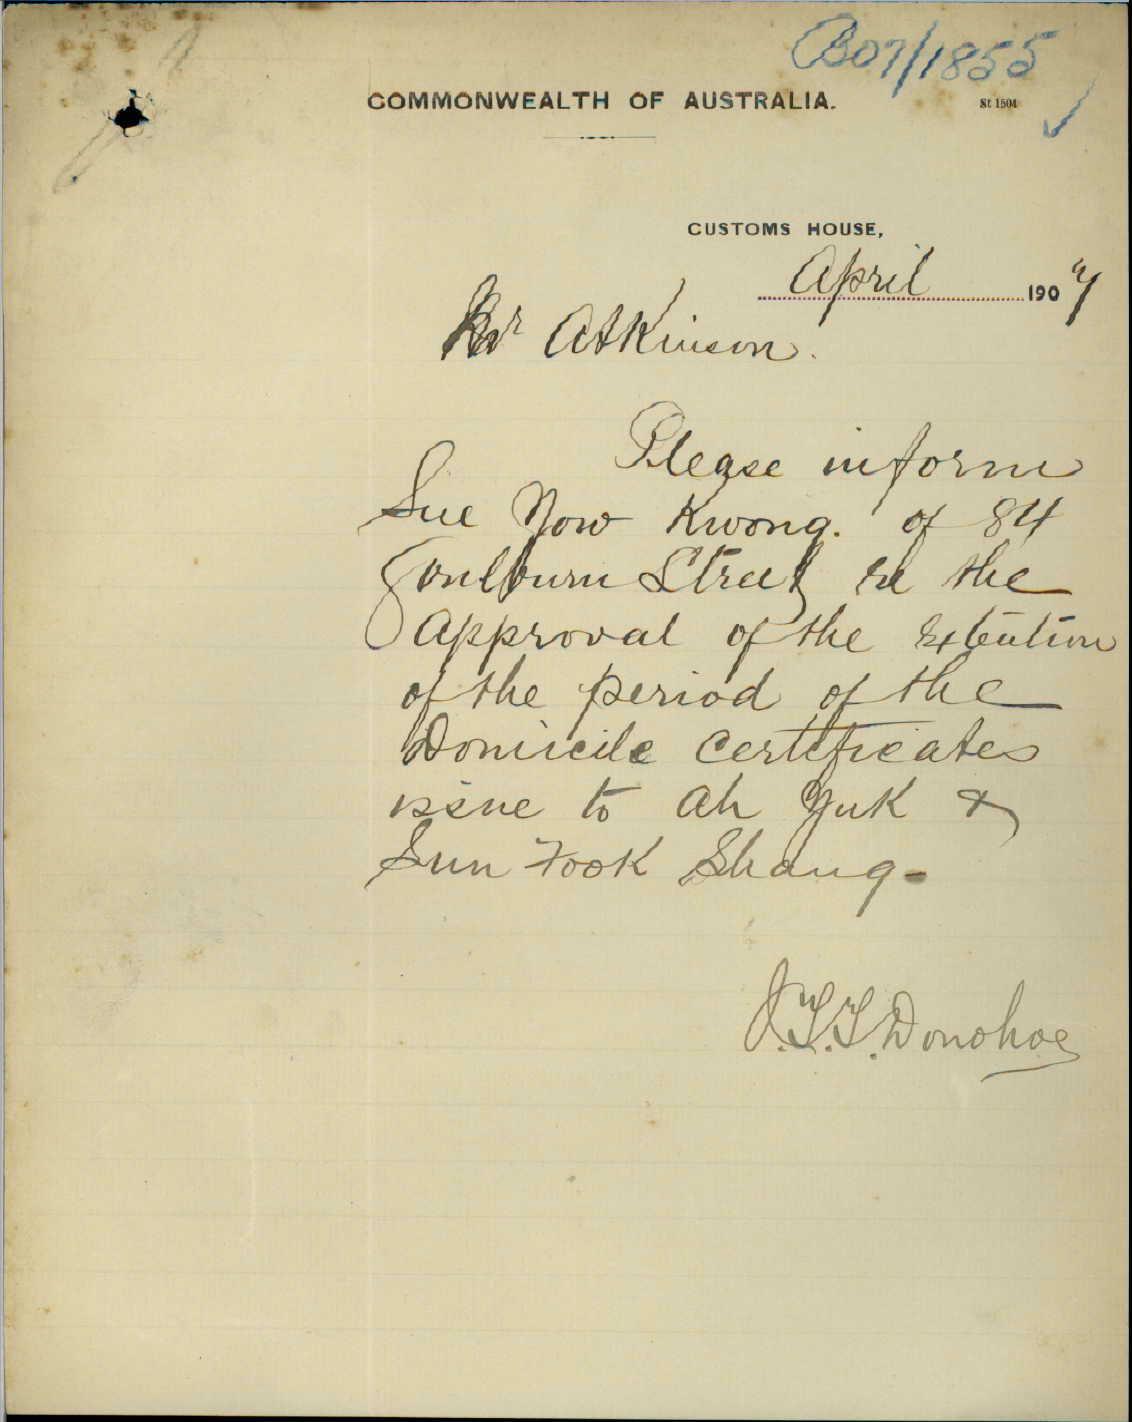 B07/1855
COMMONWEALTH OF AUSTRALIA.
St 1504
CUSTOMS HOUSE,
April 1907
Mr Atkinson.
Please inform
Sue Yow Kwong. of 84
Goulburn Street re the
Approval of the extention
of the period of the
Domicile Certificates
issue to Ah Yuk &
Sun Fook Shang-
J.T.T. Donohoe